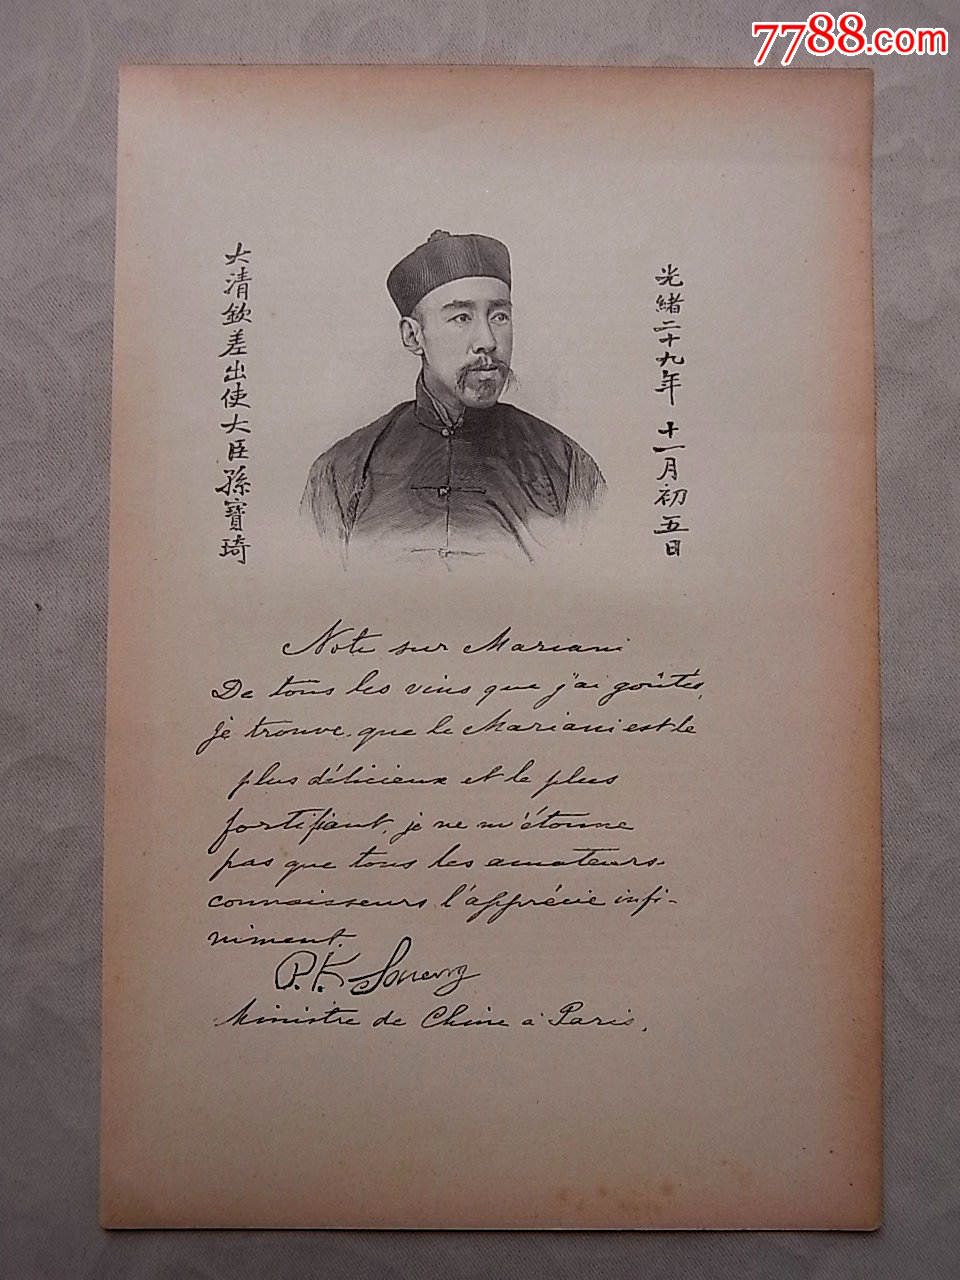 7788.com
光緒二十九年 十一月初五日
大清欽差出使大臣孫寶琦
Note sur Mariani
De tous les vins que j'ai goûtés,
je trouve que le Mariani est le
plus délicieux et le plus
fortifiant, je ne m'étonne
pas que tous les amateurs
connaisseurs l'apprécie infi-
niment.
P. K. Soueng
Ministre de Chine à Paris.